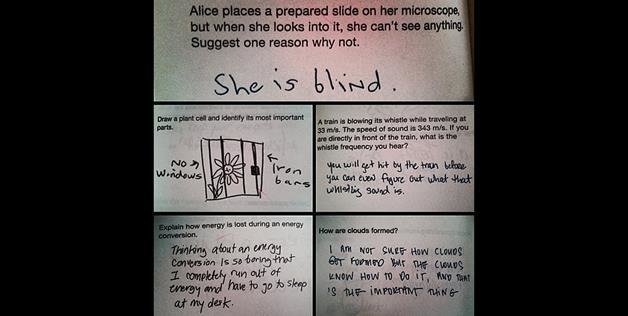 Alice places a prepared slide on her microscope,
but when she looks into it, she can't see anything.
Suggest one reason why not.
She is blind.
Draw a plant cell and identify its most important
parts.
No
Windows
Iron
bars
A train is blowing its whistle while traveling at
33 m/s. The speed of sound is 343 m/s. If you
are directly in front of the train, what is the
whistle frequency you hear?
you will get hit by the train before
you can even figure out what that
whistling sound is.
Explain how energy is lost during an energy
conversion.
Thinking about an energy
conversion is so boring that
I completely run out of
energy and have to go to sleep
at my desk.
How are clouds formed?
I AM NOT SURE HOW CLOUDS
GET FORMED BUT THE CLOUDS
KNOW HOW TO DO IT, AND THAT
IS THE IMPORTANT THING